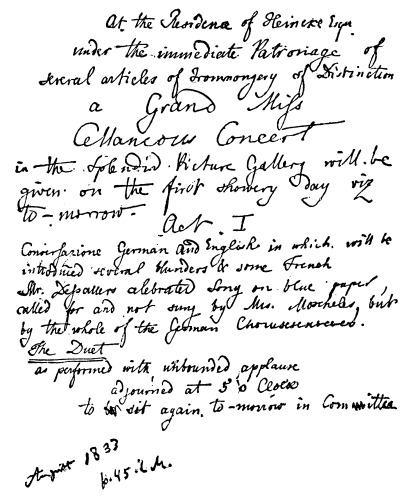 At the Residence of Heineke Esqr.
under the immediate Patronage of
several articles of Ironmongery of Distinction
a Grand Miss
Cellaneous Concert
in the Splendid Picture Gallery will be
given on the first showery day viz
to-morrow.
Act I
Conversazione German and English in which will be
introduced several blunders & some French
Mr. celebrated Song on blue paper,
called for and not sung by Mrs. Moscheles, but
by the whole of the German
The Duet
as performed with unbounded applause
adjourned at 5 o'Clock
to sit again to-morrow in Committee
August 1833